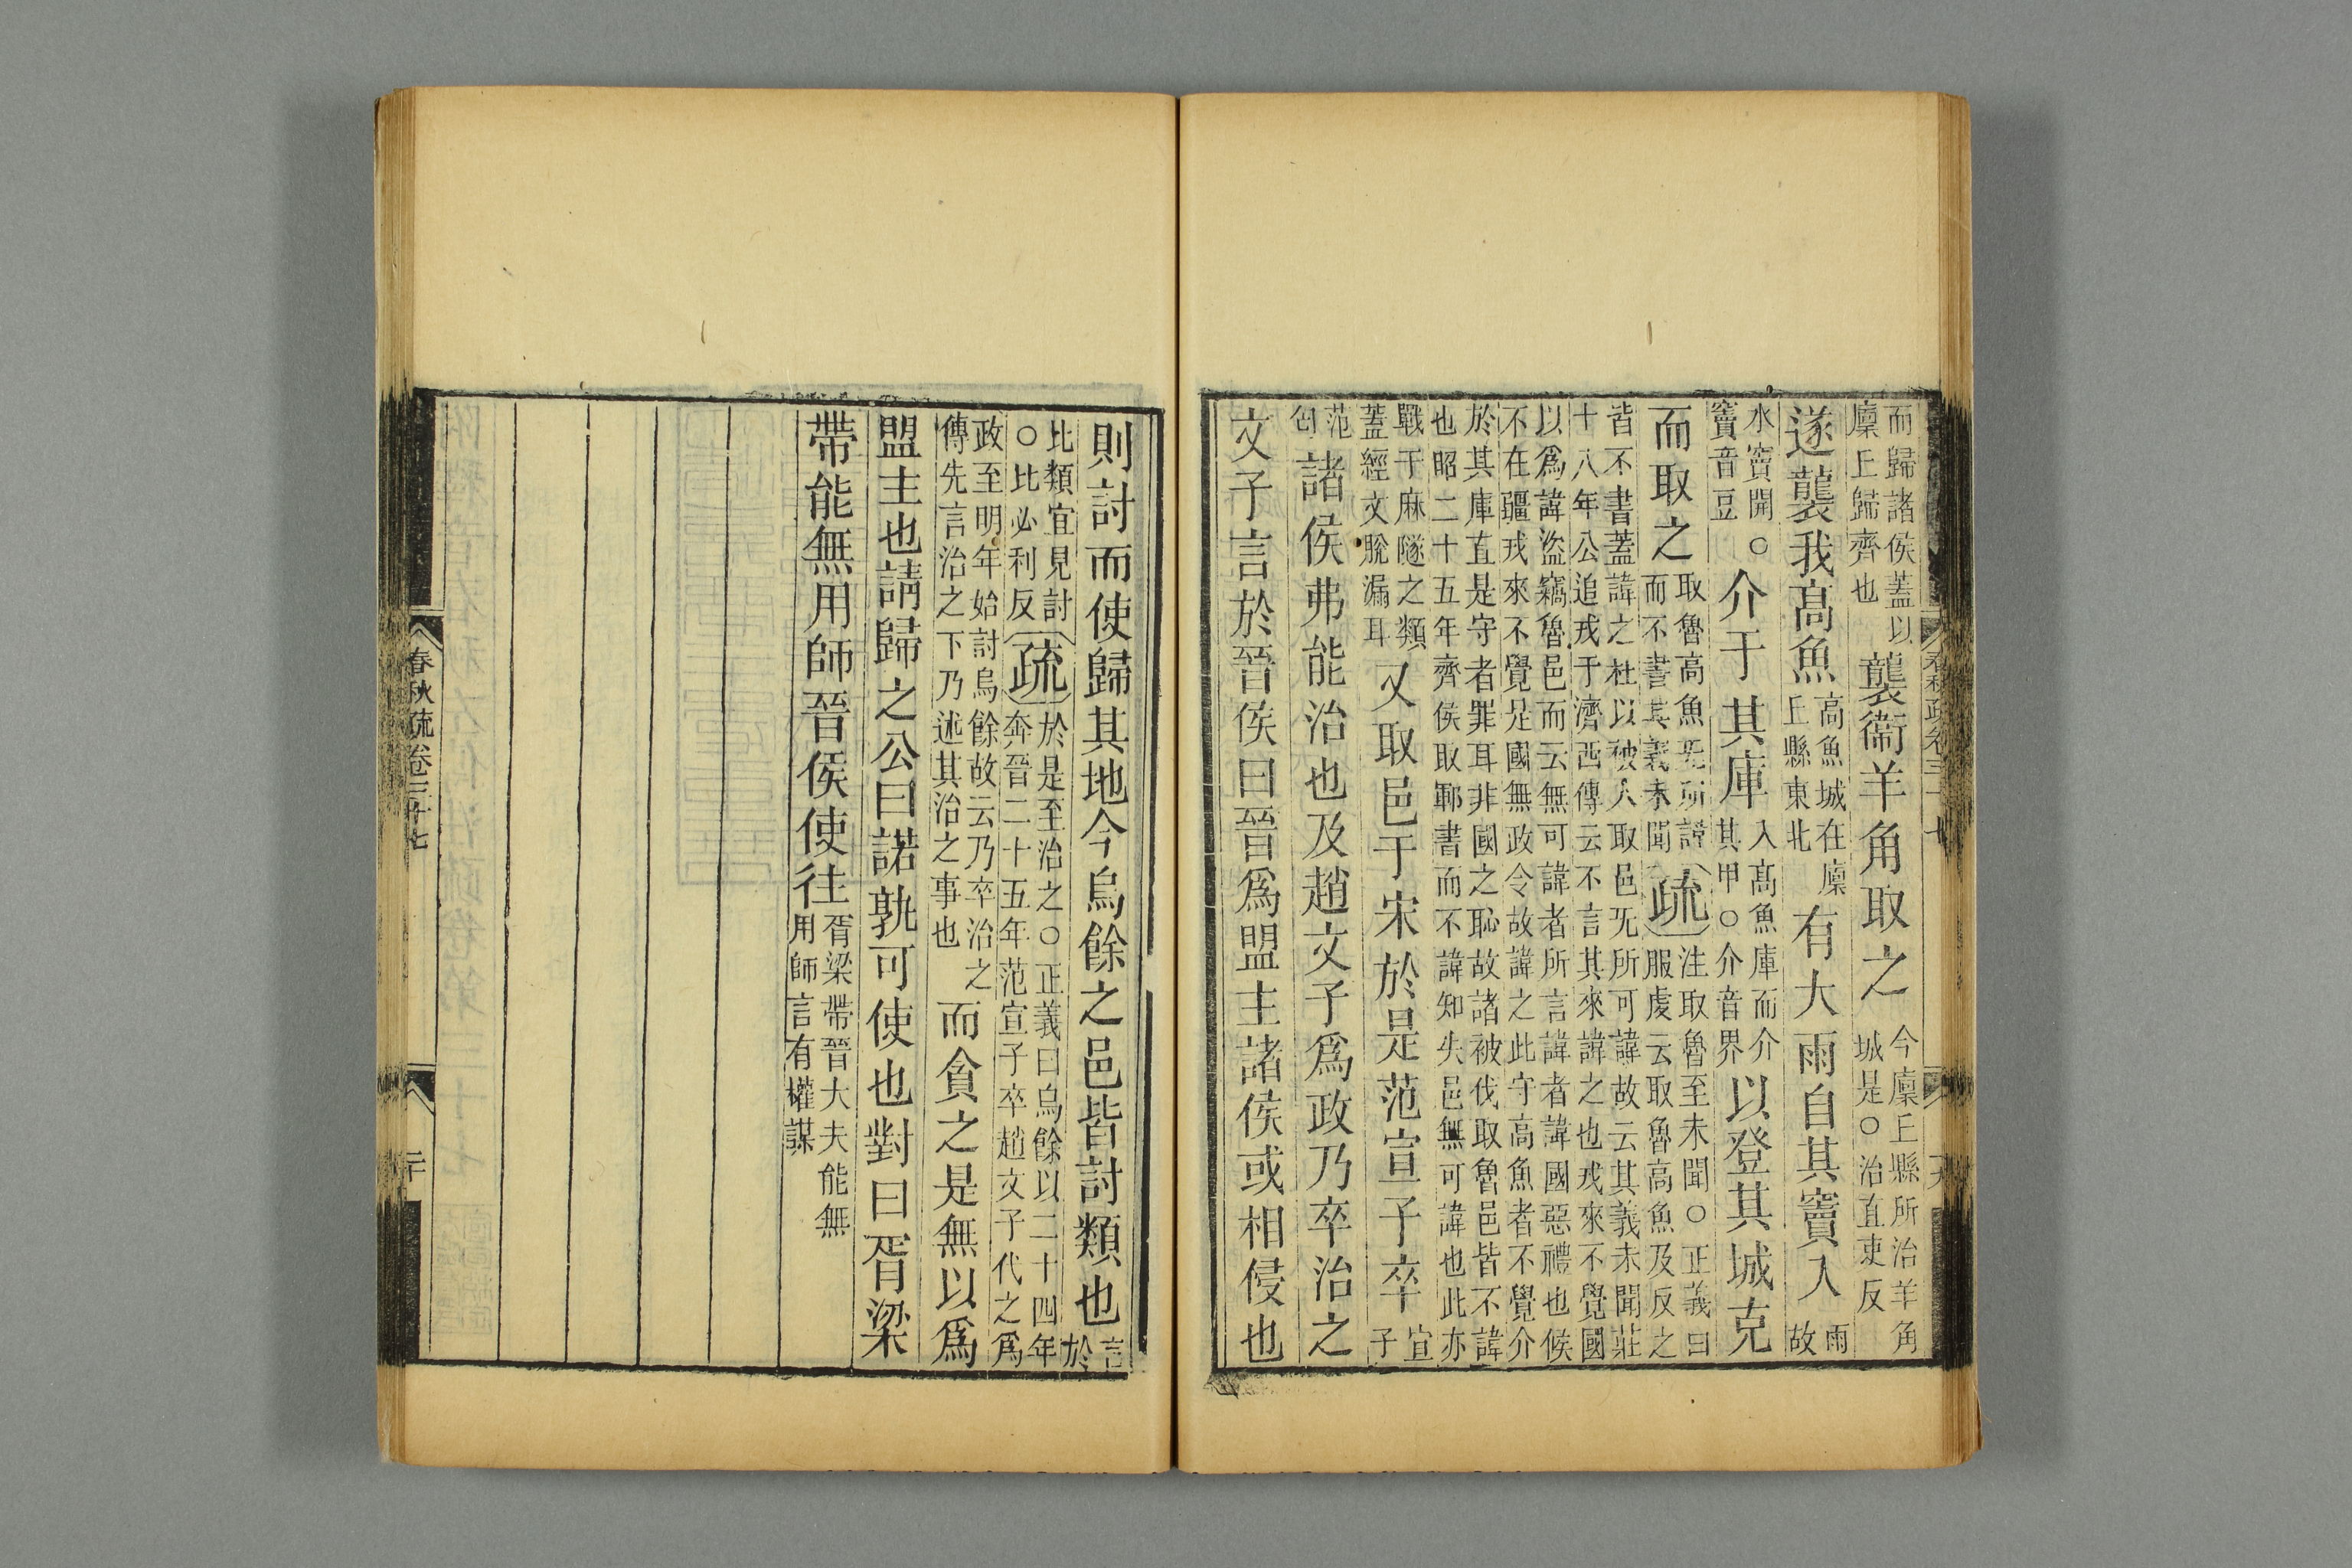 而歸諸侯蓋以廩丘歸齊也襲衞羊角取之今廩丘縣所治羊角城是○治直吏反
遂襲我高魚高魚城在廩丘縣東北有大雨自其竇入雨故
水竇開○竇音豆介于其庫入高魚庫而介其甲○介音界以登其城克
而取之取魯高魚无所諱而不書其義未聞疏注取魯至未聞○正義曰服虔云取魯高魚及反之
皆不書蓋諱之杜以被人取邑旡所可諱故云其義未聞莊
十八年公追戎于濟西傳云不言其來諱之也戎來不覺國
以爲諱盜竊魯邑而云無可諱者所言諱者諱國惡禮也候
不在疆戎來不覺是國無政令故諱之此守高魚者不覺介
於其庫直是守者罪耳非國之恥故諸被伐取魯邑皆不諱
也昭二十五年齊侯取鄆書而不諱知失邑無可諱也此亦
戰于麻隧之類蓋經文脫漏耳又取邑于宋於是范宣子卒宣子
范匄諸侯弗能治也及趙文子爲政乃卒治之
文子言於晉侯曰晉爲盟主諸侯或相侵也
則討而使歸其地今烏餘之邑皆討類也言於
比類宜見討○比必利反疏於是至治之○正義曰烏餘以二十四年奔晉二十五年范宣子卒趙文子代之爲
政至明年始討烏餘故云乃卒治之傳先言治之下乃述其治之事也而貪之是無以爲
盟主也請歸之公曰諾孰可使也對曰胥梁
帶能無用師晉侯使往胥梁帶晉大夫能無用師言有權謀
春秋疏卷三十七
二十